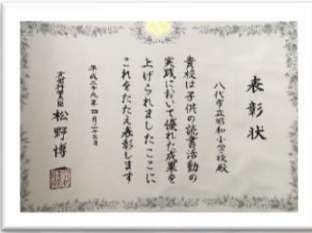 表彰状
八代市立昭和小学校殿
貴校は子供の読書活動の
実践において優れた成果を
上げられましたここに
これをたたえ表彰します
平成二十九年四月二十三日
文部科学大臣 松野博一